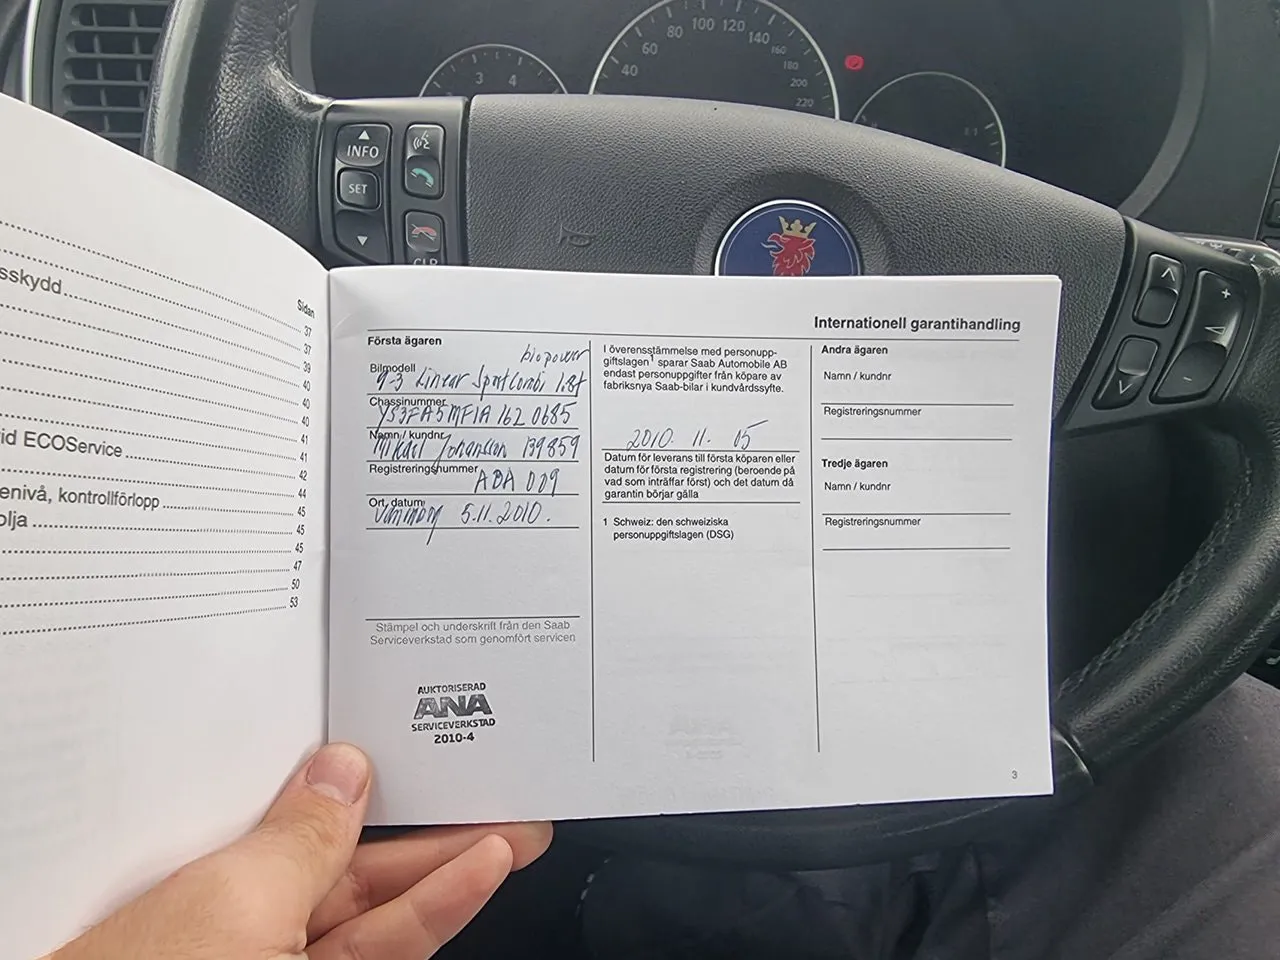 3 4
40 60 80 100 120 140 160 180 200 220
INFO
SET
CLR
+
-
Sidan
sskydd 37
37
39
40
40
40
41
rid ECOService 41
42
44
enivå, kontrollförlopp 45
olja 45
45
47
50
53
Internationell garantihandling
Första ägaren
biopower
Bilmodell
9-3 Linear SportCombi 1.8t
Chassinummer
YS3FA5MF1A1620685
Namn / kundnr
Mikael Johansson 139859
Registreringsnummer
009
Ort, datum
5.11.2010.
Stämpel och underskrift från den Saab
Serviceverkstad som genomfört servicen
AUKTORISERAD
ANA
SERVICEVERKSTAD
2010-4
I överensstämmelse med personupp-
giftslagen1 sparar Saab Automobile AB
endast personuppgifter från köpare av
fabriksnya Saab-bilar i kundvårdssyfte.
2010. 11. 05
Datum för leverans till första köparen eller
datum för första registrering (beroende på
vad som inträffar först) och det datum då
garantin börjar gälla
1 Schweiz: den schweiziska
personuppgiftslagen (DSG)
Andra ägaren
Namn / kundnr
Registreringsnummer
Tredje ägaren
Namn / kundnr
Registreringsnummer
3